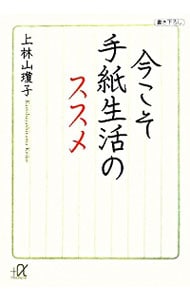 書き下ろし
今こそ
手紙生活の
ススメ
上林山瓊子
Kanbayashiyama Keiko
+α